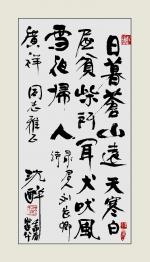 日暮蒼山遠天寒白
屋貧柴門聞犬吠風
雪夜歸人
唐人刘長卿
廣祥同志雅正
沈醉